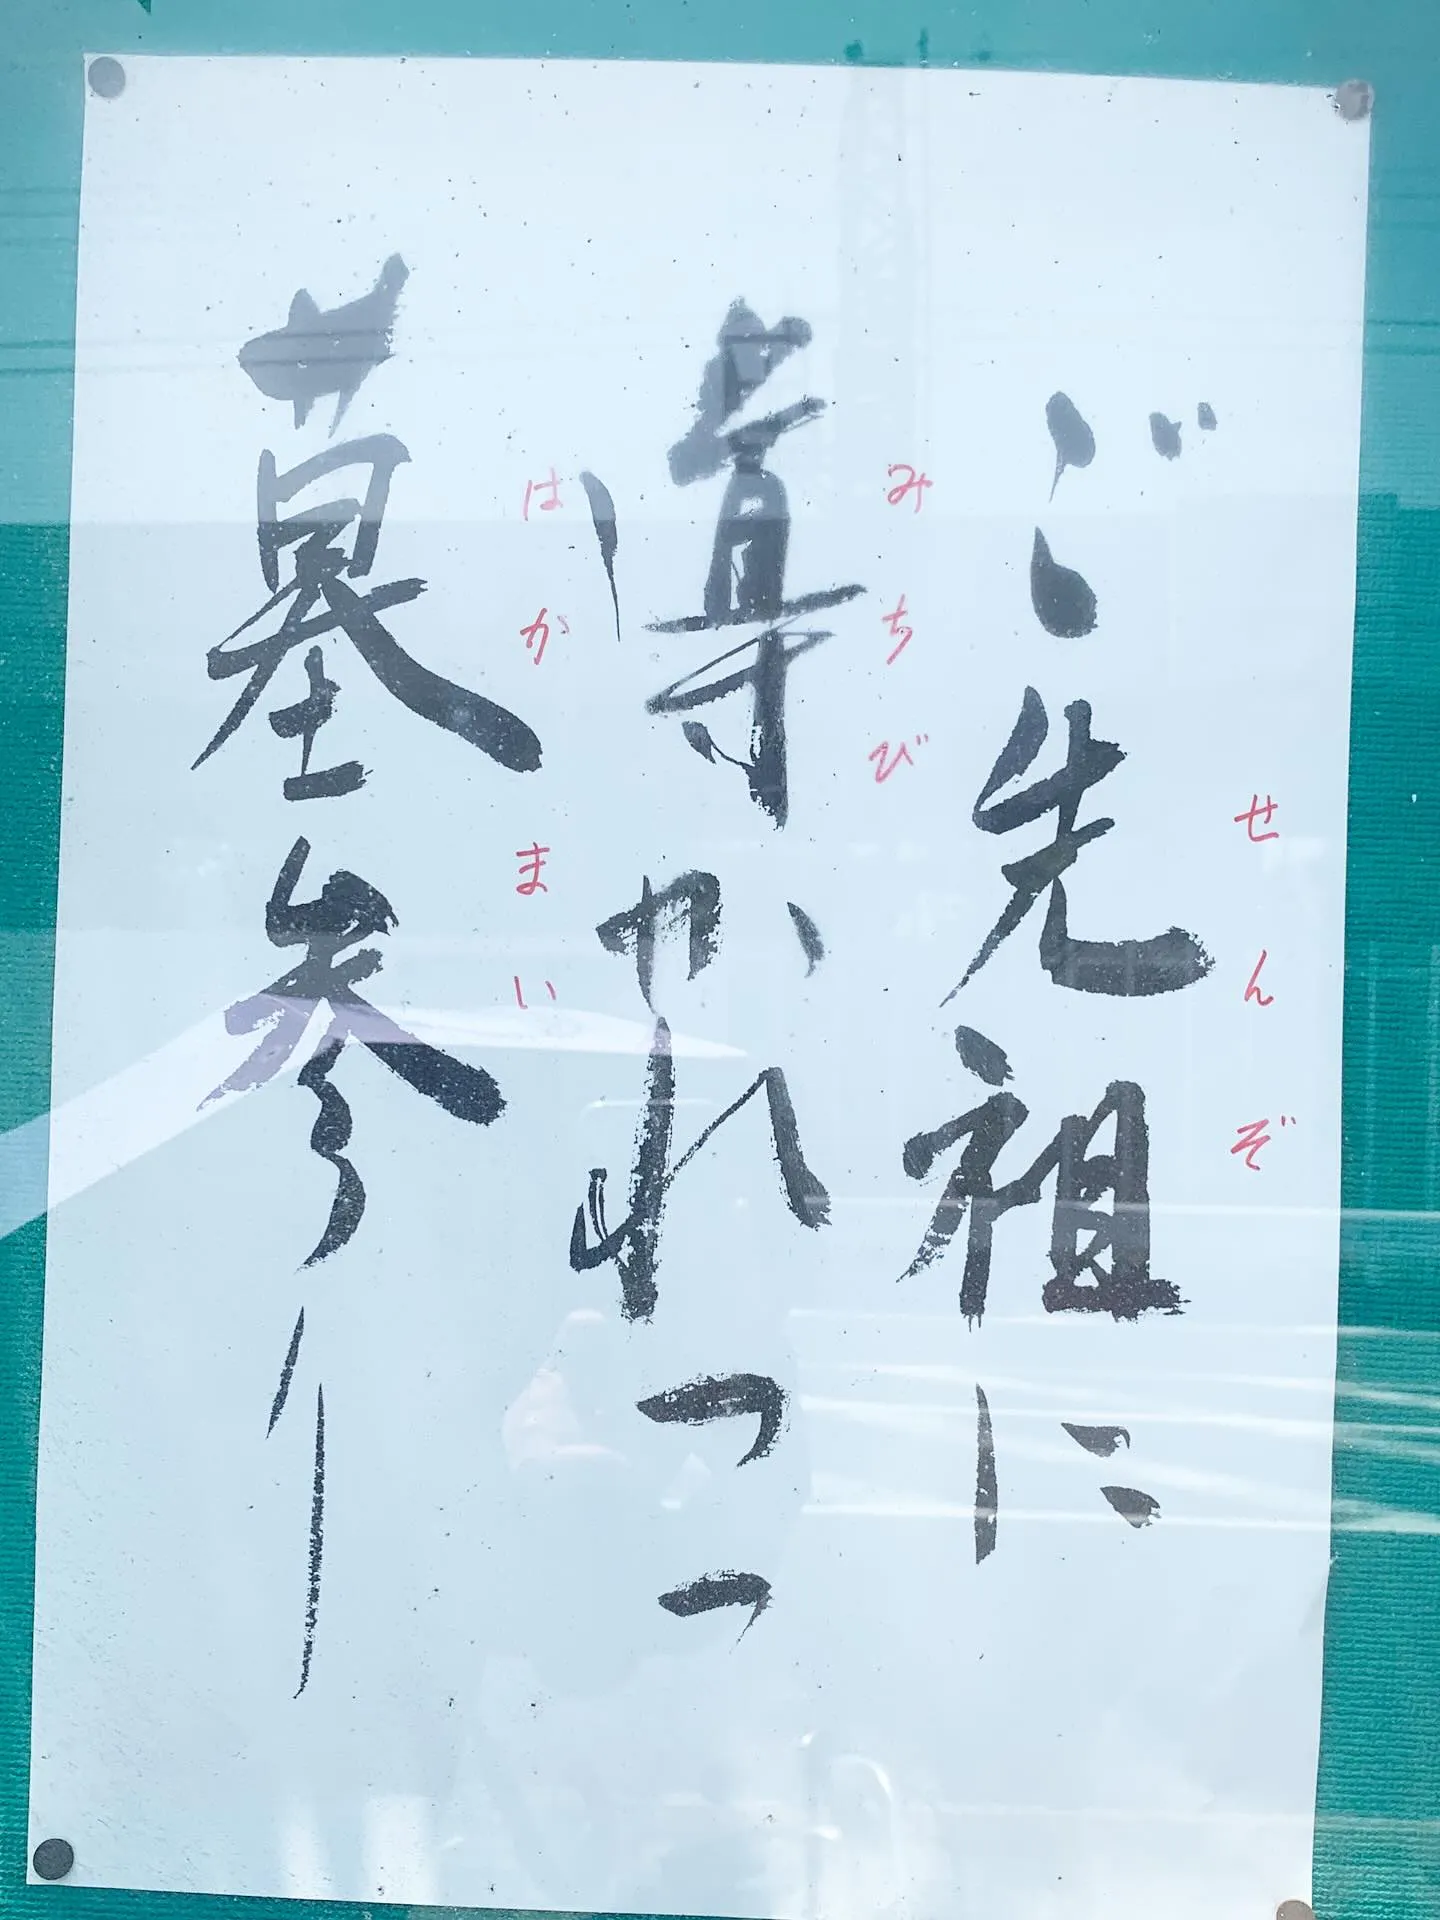 ご先祖に
せんぞ
導かれつつ
みちび
墓参り
はかまい